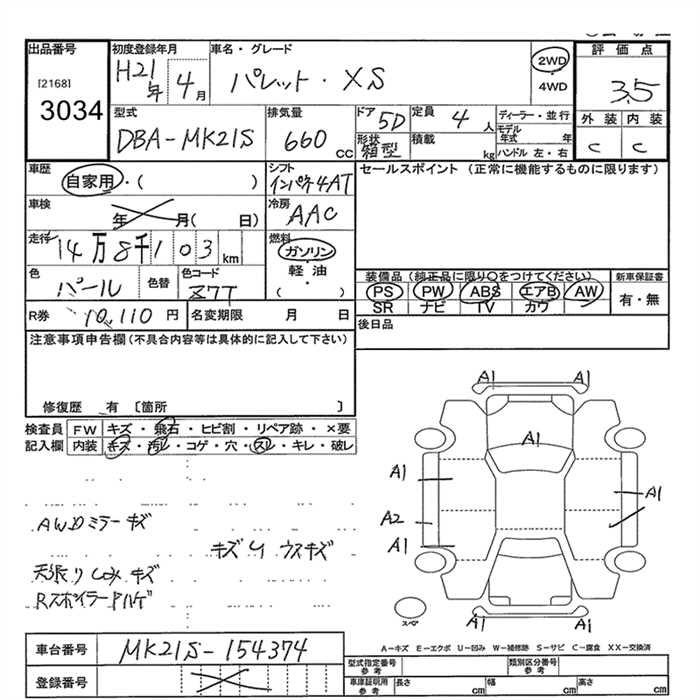 出品番号 初度登録年月 車名・グレード 評価点
[2168] H21年 4月 パレット・XS 2WD 3.5
3034 4WD
型式 排気量 ドア 5D 定員 4人 ディーラー・並行 外装 内装
DBA-MK21S 660cc 形状 箱型 積載 kg モデル年式 年 C C
ハンドル 左・右
車歴 シフト セールスポイント (正常に機能するものに限ります)
自家用・( ) インパネ4AT
車検 年 月( 日) 冷房 AAC
走行 14万8千103km 燃料 ガソリン・軽油・( )
装備品 (純正品に限り○をつけてください) 新車保証書
色 パール 色替 色コード Z7T PS PW ABS エアB AW 有・無
SR ナビ TV カワ
R券 10,110円 名変期限 月 日 後日品
注意事項申告欄 (不具合内容等は具体的に記入して下さい)
修復歴 有 〔箇所 〕
検査員 FW キズ・飛石・ヒビ割・リペア跡・×要
記入欄 内装 キズ・汚レ・コゲ・穴・スレ・キレ・破レ
A1 A1
A1
A1 A1
A2
A1
A1 A1
AWDミラーキズ
キズU ウスキズ
天張りしみキズ
Rスポイラー Pハゲ
スペア
車台番号 MK21S-154374
A-キズ E-エクボ U-凹み W-補修跡 S-サビ C-腐食 XX-交換済
登録番号
型式指定番号 参考 類別区分番号 参考
車庫証明用 参考 長さ cm 幅 cm 高さ cm